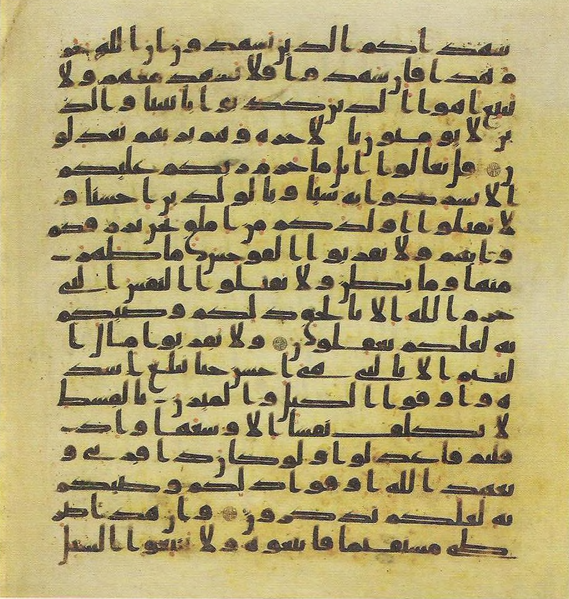 شهداكم الذين يشهدون ان الله حر
م هذا فان شهدوا فلا تشهد معهم ولا
تتبع اهوا الذين كذبوا بايتنا والذ
ين لا يومنون بالاخرة وهم بربهم يعدلو
ن قل تعالوا اتل ما حرم ربكم عليكم
الا تشركوا به شيا وبالولدين احسنا و
لا تقتلوا اولدكم من املق نحن نرزقكم
وايهم ولا تقربوا الفوحش ما ظهر
منها وما بطن ولا تقتلوا النفس التي
حرم الله الا بالحق ذلكم وصيكم
به لعلكم تعقلون ولا تقربوا مال ا
ليتيم الا بالتي هي احسن حتى يبلغ اشد
ه واوفوا الكيل والميزن بالقسط
لا نكلف نفسا الا وسعها واذا
قلتم فاعدلوا ولو كان ذا قربى و
بعهد الله اوفوا ذلكم وصيكم
به لعلكم تذكرون وان هذا صر
طي مستقيما فاتبعوه ولا تتبعوا السبل